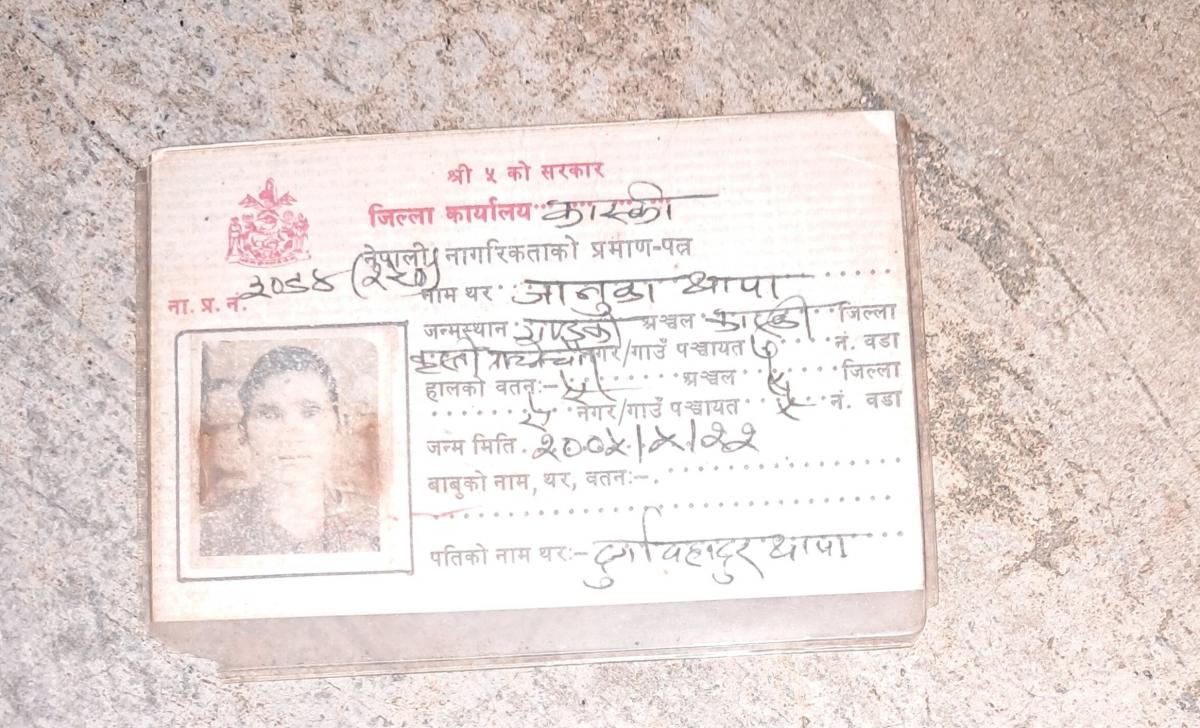 श्री ५ को सरकार
जिल्ला कार्यालय कास्की
(नेपाली) नागरिकताको प्रमाण-पत्र
ना. प्र. नं.
नाम थर जानुका थापा
जन्मस्थान गण्डकी अञ्चल कास्की जिल्ला
नगर/गाउँ पञ्चायत ७ नं. वडा
हालको वतनः- ऐ अञ्चल ऐ जिल्ला
ऐ नगर/गाउँ पञ्चायत ऐ नं. वडा
जन्म मिति. २००५/५/२२
बाबुको नाम, थर, वतनः-
पतिको नाम थरः- दुर्गा वहादुर थापा